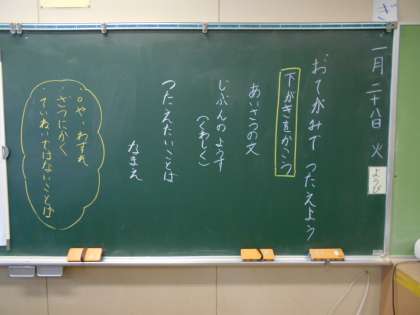 一月二十八日 火
ようび
おてがみで つたえよう
下がきをかこう
あいさつの文
じぶんのようす
(くわしく)
つたえたいことば
なまえ
・。や、わすれ
・ざつにかく
・ていねいではないことば